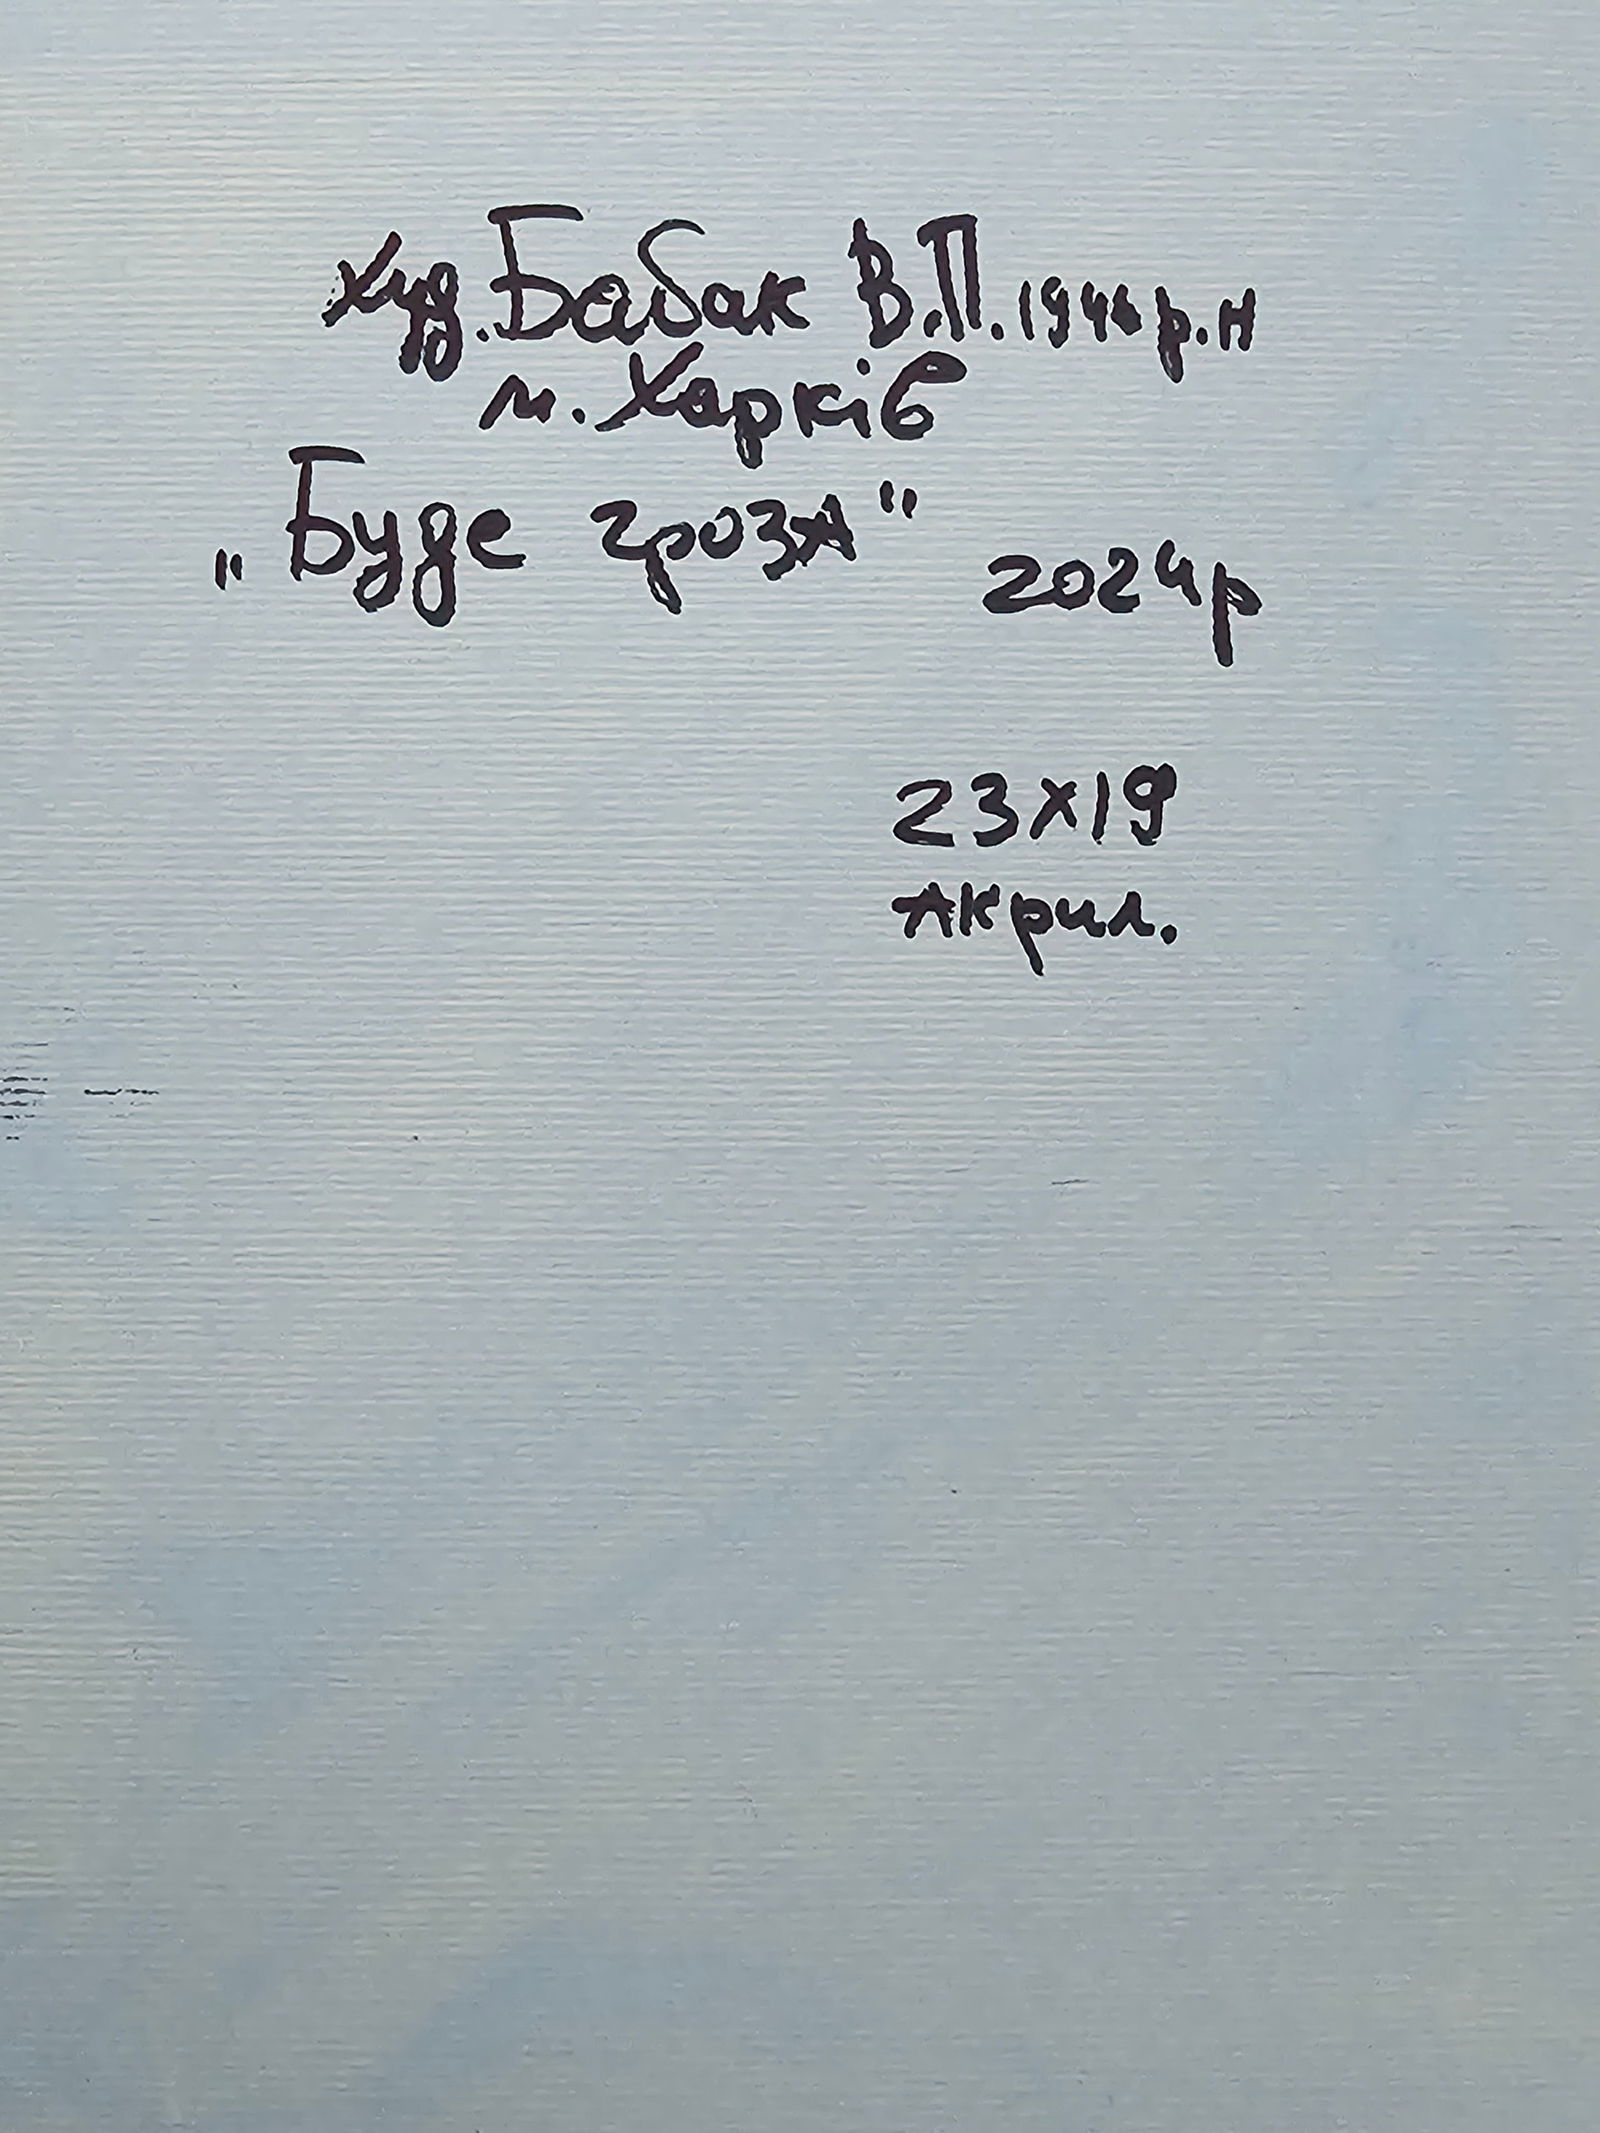 худ. Бабак В.П. 1946 р.н
м. Харків
„Буде гроза" 2024р
23х19
Акрил.